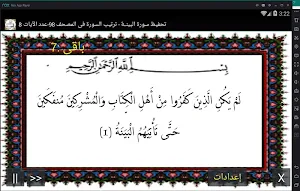 3:22
تحفيظ سورة البينة - ترتيب السورة فى المصحف 98-عدد الآيات 8
باقى :7
بِسْمِ اللَّهِ الرَّحْمَنِ الرَّحِيمِ
لَمْ يَكُنِ الَّذِينَ كَفَرُوا مِنْ أَهْلِ الْكِتَابِ وَالْمُشْرِكِينَ مُنفَكِّينَ
حَتَّى تَأْتِيَهُمُ الْبَيِّنَةُ (1)
|| >> << إعدادات X